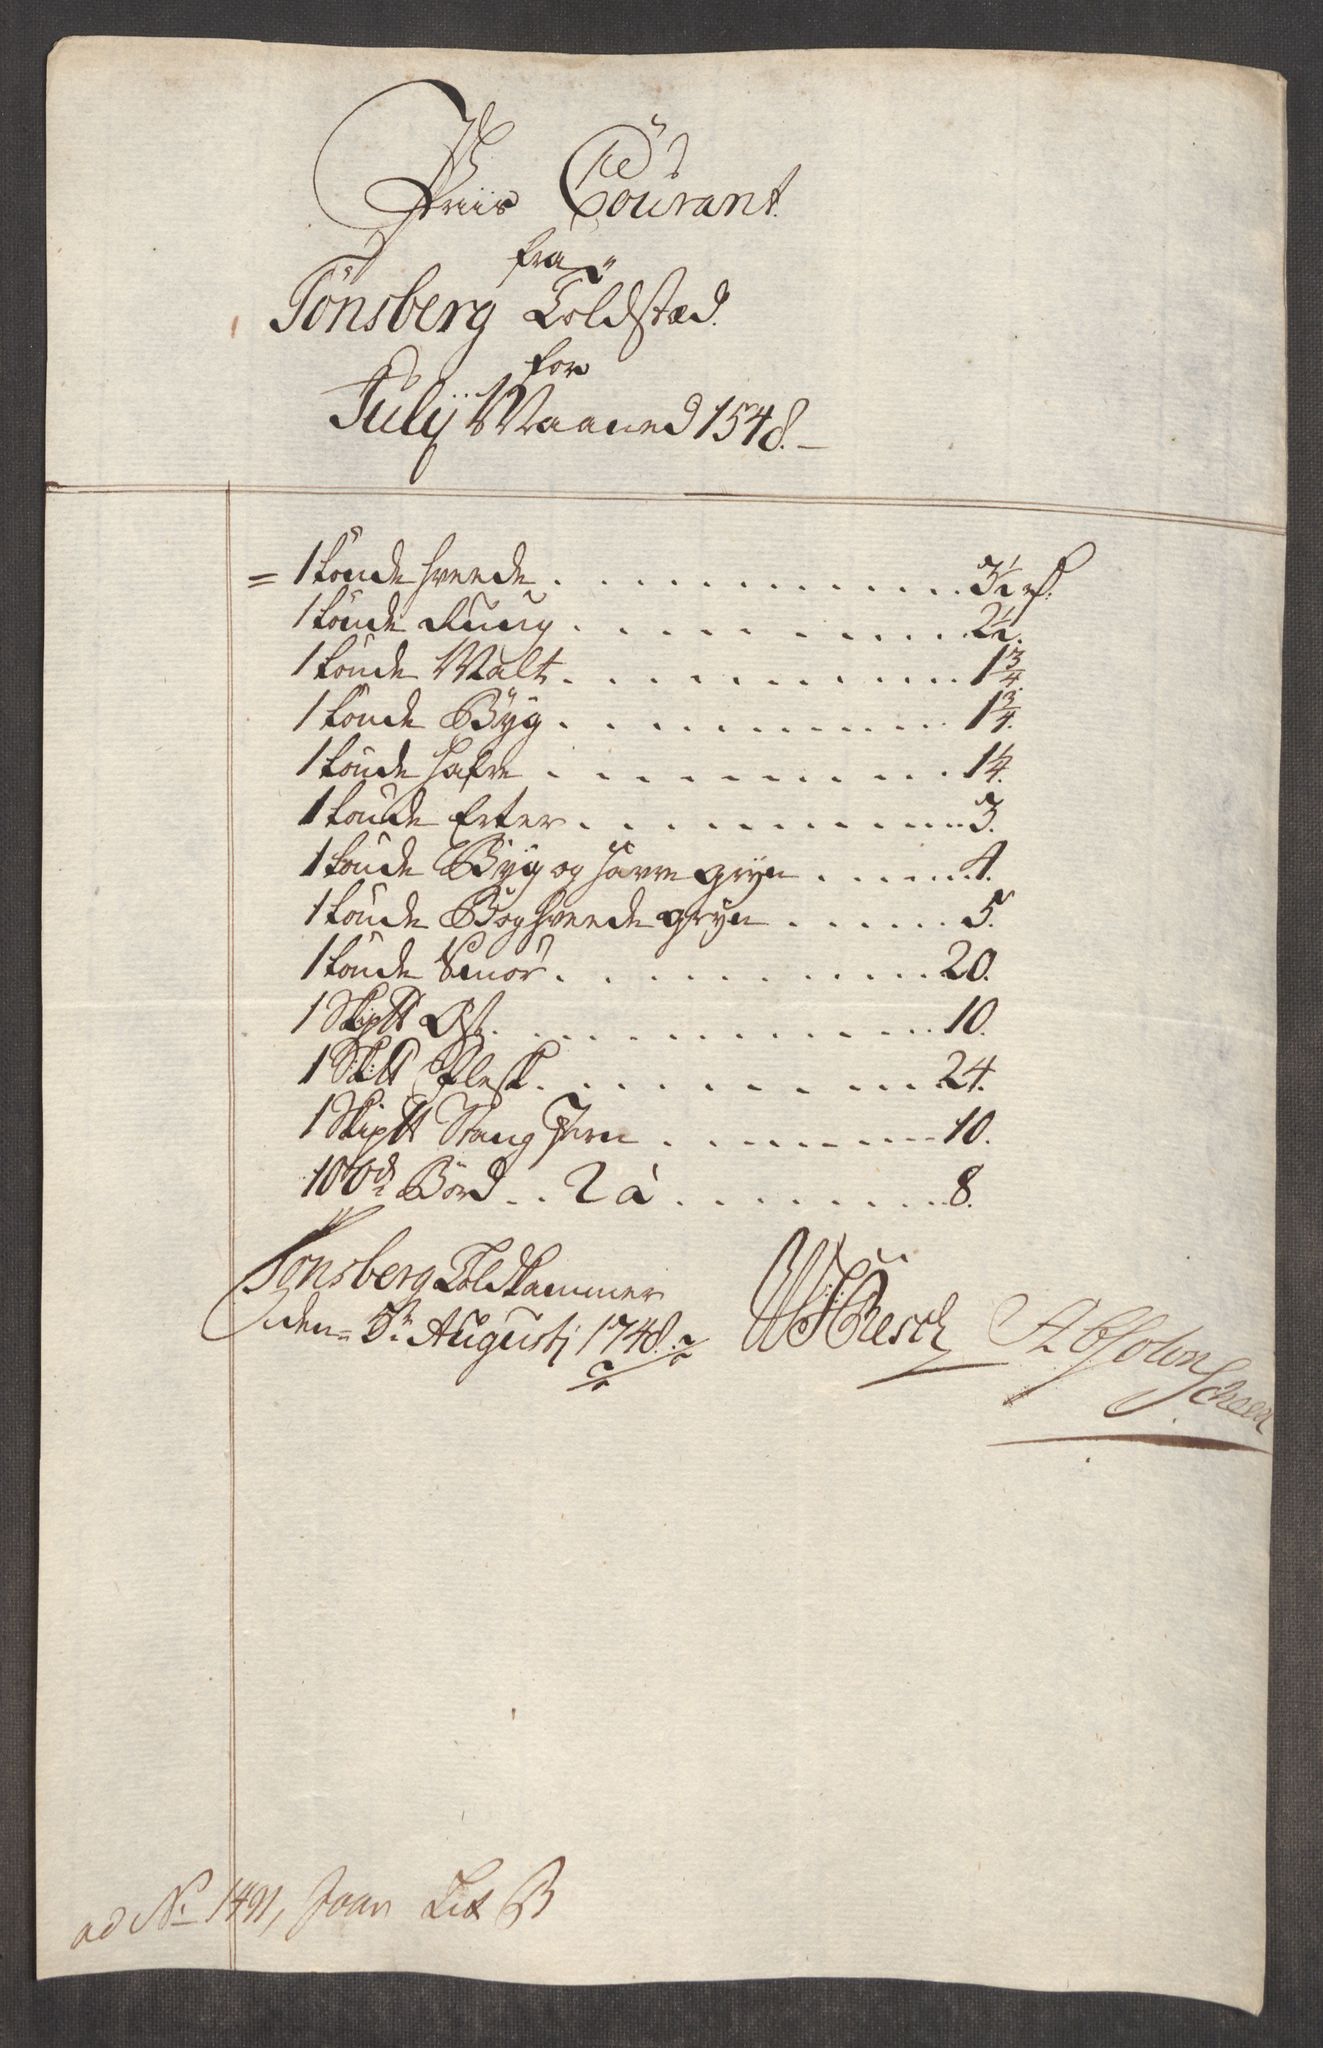 Priis Courant.
fra
Tönsberg Toldstæd.
for
Julÿ Maaned 1548.
= 1 tönde Hveede . . . . . . . . . . . . 3½ rd.
1 tönde Rung . . . . . . . . . . 2½.
1 tönde Malt . . . . . . . . . . 1¾.
1 tönde Byg . . . . . . . . . . 1¾.
1 tönde Hafre . . . . . . . . . . 1¼.
1 tönde Erter . . . . . . . . . . 3.
1 tönde Byg og Havre gryn . . . . . . 4.
1 tönde Boghveede gryn . . . . . . 5.
1 tönde Smör . . . . . . . . . . 20.
1 Skip℔ Ost . . . . . . . . . . 10.
1 Sk℔ Flesk . . . . . . . . . . 24.
1 Skip℔ Stang Jern . . . . . . . . 10.
100de Bord . . 2 à . . . . . . . . 8.
Tönsberg Toldkammer
den 5te Augustj 1748.
Resch
Absolon
Scheen
ad No 1491, Joan Lit B